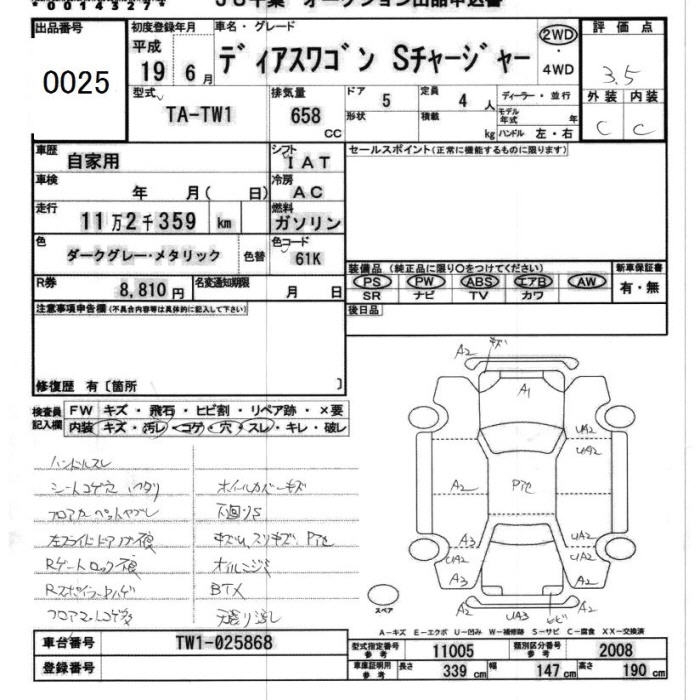 00143274
出品番号
0025
初度登録年月
平成
19 6月
車名・グレード
ディアスワゴン Sチャージャー
2WD
・
4WD
評価点
3.5
外装 内装
C C
型式
TA-TW1
排気量
658
cc
ドア
5
定員
4 人
形状
積載
kg
ディーラー・並行
モデル年式 年
ハンドル 左・右
車歴
自家用
シフト
IAT
セールスポイント(正常に機能するものに限ります)
車検
年 月( 日)
冷房
AC
走行
11万2千359 km
燃料
ガソリン
色
ダークグレー・メタリック
色替
色コード
61K
R券
8,810円
名変通知期限
月 日
装備品(純正品に限り○をつけてください)
PS PW ABS エアB AW
SR ナビ TV カワ
新車保証書
有・無
後日品
注意事項申告欄(不具合内容等は具体的に記入して下さい)
修復歴 有〔箇所 〕
検査員記入欄
FW キズ・飛石・ヒビ割・リペア跡・×要
内装 キズ・汚レ・コゲ・穴・スレ・キレ・破レ
ハンドルスレ
シートコゲ穴
オイルカバーキズ
下回りS
BTX
A2
キズ
A1
A2
UA2
UA2
A2
A2
A3
UA2
A3
UA2
UA2
UA2
A2
UA3
スペア
A-キズ E-エクボ U-凹み W-補修跡 S-サビ C-腐食 XX-交換済
車台番号
TW1-025868
登録番号
型式指定番号
参考
11005
類別区分番号
参考
2008
車庫証明用
参考
長さ 339 cm
幅 147 cm
高さ 190 cm